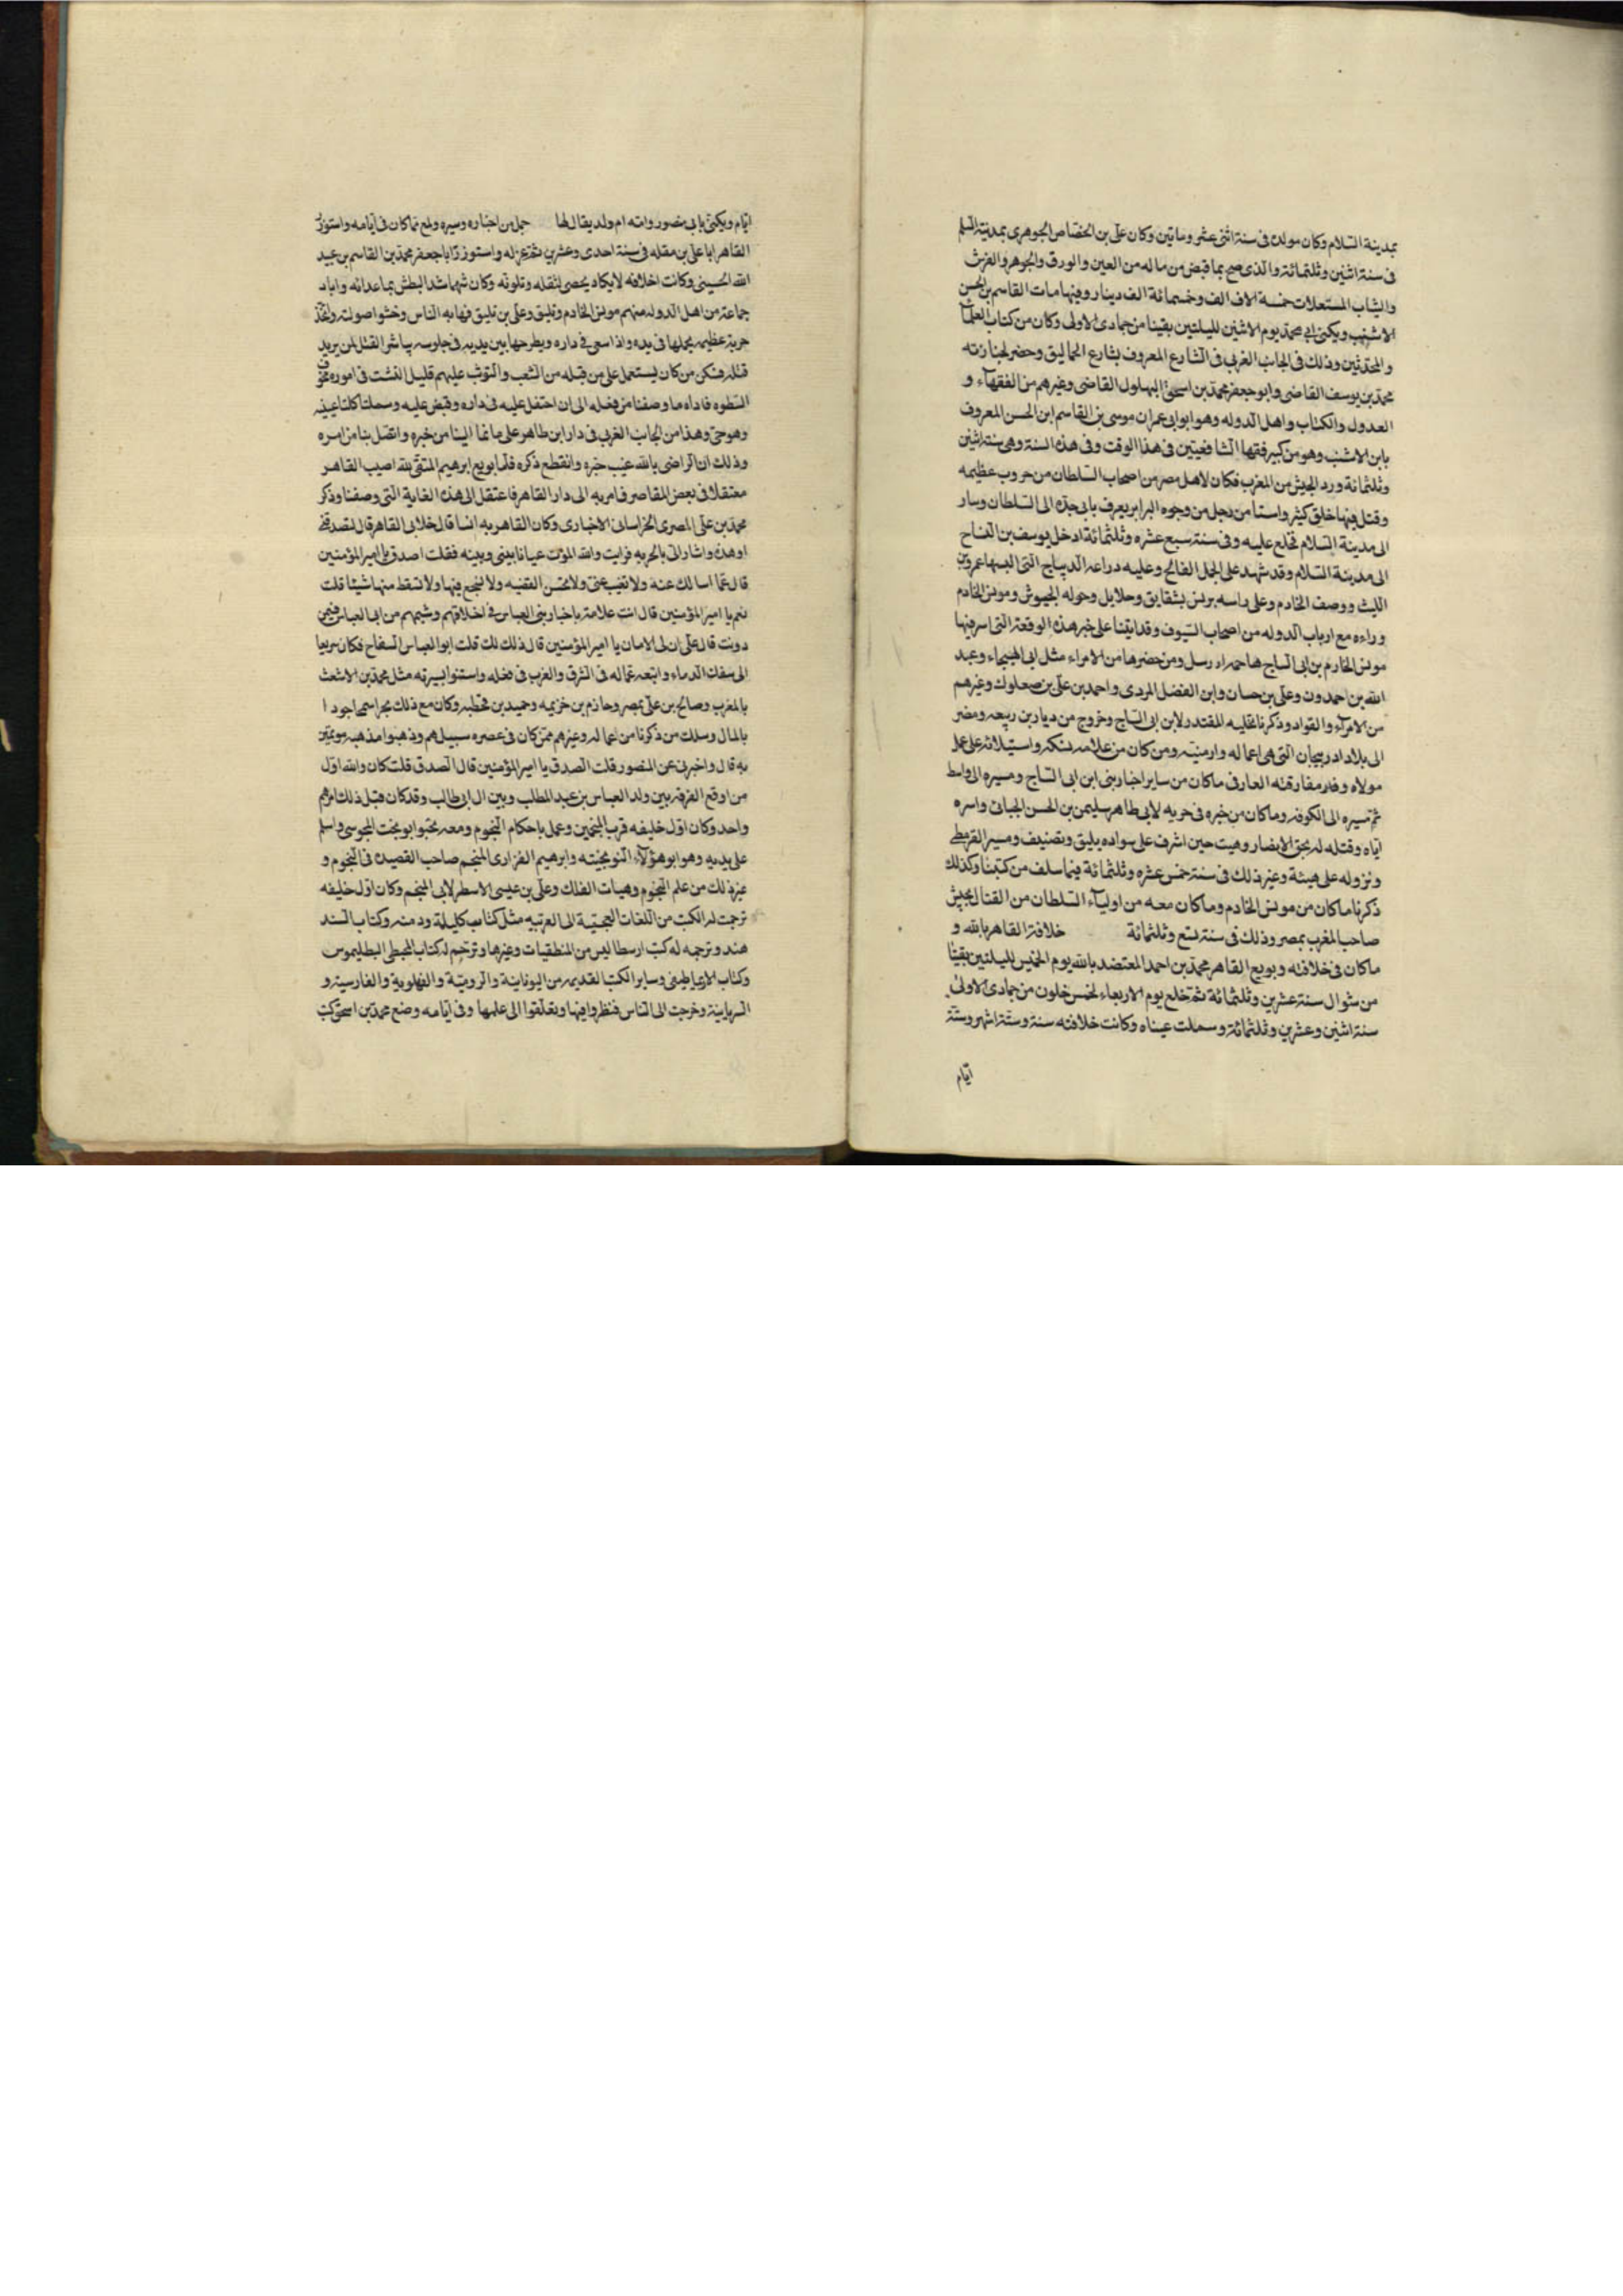 بمدينة السلام وكان مولده فى سنة اثنى عشر وماتين وكان على بن الحصاص الجوهرى بمدينة السلم
فى سنة اثنين وثلثمائة والذى صح بما قبض من ماله من العين والورق والجوهر والفرش
والثياب المستعلات خمسة الاف الف وخمسمائة الف دينار وفيها مات القاسم بن الحسن
الاشنب ويكنى ابى محمد يوم الاثنين لليلتين بقيتا من جمادى الاولى وكان من كتاب العلما
والمحدثين وذلك فى الجانب الغربى فى الشارع المعروف بشارع الحماليق وحضر لجنازته
محمد بن يوسف القاضى وابو جعفر محمد بن اسحق البهلول القاضى وغيرهم من الفقهآء و
العدول والكتاب واهل الدوله وهو ابو ابى عمران موسى بن القاسم ابن الحسن المعروف
بابن الاشنب وهو من كبير فقها الشافعيين فى هذا الوقت وفى هذه السنة وهى سنة اثنين
وثلثمائة ورد الجيش من المغرب فكان لاهل مصر من اصحاب السلطان من حروب عظيمه
وقتل فيها خلق كثير واستامن رجل من وجوه البرابر يعرف بابى جده الى السلطان وسار
الى مدينة السلام فخلع عليه وفى سنة سبع عشره وثلثمائة ادخل يوسف بن الساج
الى مدينة السلام وقد شهد على الجمل الفالح وعليه دراعه الديباج التى البسها عمرو بن
الليث ووصف الخادم وعلى راسه برنس بشقايق وحلايل وحوله الجيوش ومونس الخادم
وراءه مع ارباب الدوله من اصحاب السيوف وقد اتينا على خبر هذه الوقعة التى اسر فيها
مونس الخادم بن ابى الساج ومن حضرها من الامراء مثل ابى الهيجاء وعبد
الله بن احمدون وعلى بن حسان وابن الفضل المردى واحمد بن على بن صعلوك وغيرهم
من الامراء والقواد وذكرنا تخليه المقتدر لابن ابى الساج وخروج من ديار بن ربيعه ومضر
الى بلاد ادربيجان التى هى اعماله وارمنيه ومن كان من غلامه سبكه واستيلائه على عمل
مولاه مفارقته العارفى ماكان من ساير اخار بنى ابن ابى الساج ومسيره الى واسط
ثم تسيره الى الكوفه وماكان من خبره فى حربه لابى طاهر سليمن بن الحسن الجبائى واسره
اياه وقتله له حين اشرف على سواده يليق ومسير القرمطى
ونزوله على هيئة وغير ذلك فى سنة خمس عشره وثلثمائة فيما سلف من كتبنا وكذلك
ذكرنا ماكان من مونس الخادم وماكان معه من اوليآء السلطان من القتال لجيش
صاحب المغرب بمصر وذلك فى سنة تسع وثلثمائة خلافة القاهر بالله و
ماكان فى خلافته وبويع القاهر محمد بن احمد المعتضد بالله يوم الخميس لليلتين بقيتا
من شوال سنة عشرين وثلثمائة ثم خلع يوم الاربعاء لخمس خلون من جمادى الاولى
سنة اثنين وعشرين وثلثمائة وسملت عيناه وكانت خلافته سنة وستة اشهر وستة
ايام
ايام ويكنى بابى منصور وامه ام ولد يقال لها جمل من اخباره وسيره ولمع مما كان فى ايامه واستوزر
القاهر ابا على بن مقله فى سنة احدى وعشرين ثم عزله واستوزر ابا جعفر محمد بن القاسم بن عبيد
الله الحسينى وكانت اخلاقه لايكاد يحصى لثقله وتلونه وكان شهما شد البطش بما عدائه واباد
جماعة من اهل الدوله منهم مونس الخادم وتليق وعلى بن تليق فهابه الناس وخشوا صولته واتخذ
حربة عظيمه يحملها فى يده واذا سعى فى داره ويطرحها بين يديه فى جلوسه يباشر القتل لمن يريد
قتله فسكن من كان يستعمل على من قبله من الشعب والتوثب عليهم قليل التثبت فى اموره مخوف
السطوه فاداه ما وصفنا من فعله الى ان احتفل عليه فى داره وقبض عليه وسملتا كلتا عينيه
وهو حى وهذا من الجانب الغربى فى دار ابن طاهر على ما نما الينا من خبره واتصل بنا من امره
وذلك ان الراضى بالله غيب خبره وانقطع ذكره فلما بويع ابرهيم المتقى لله اصيب القاهر
معتقلا فى بعض المقاصر فامر به الى دار القاهر فاعتقل الى هذه الغاية التى وصفنا وذكر
محمد بن على المصرى الخراسانى الاخبارى وكان القاهر به انسا قال خلا بى القاهر قال تصدقنى
او هذه واشار الى بالحربه فرايت والله الموت عيانا بينى وبينه فقلت اصدق يا امير المؤمنين
قال عما اسالك عنه ولا تغيب عنى ولا تحسن القضيه ولا تسجع فيها ولا تسقط منها شيئا قلت
نعم يا امير المؤمنين قال انت علامة باخبار بنى العباس فى اخلاقهم وشيمهم من ابى العباس فمن
دونت قال على ان لى الامان يا امير المؤمنين قال ذلك لك قلت ابو العباس السفاح فكان سريعا
الى سفك الدماء واتبعه عماله فى الشرق والغرب فى فعله واستنوا بسيرته مثل محمد بن الاشعث
بالمغرب وصالح بن على بمصر وحازم بن خزيمه وحميد بن قحطبه وكان مع ذلك بحرا سمحا جودا
بالمال وسلك من ذكرنا من اعماله وغيرهم ممن كان فى عصره سبيلهم وذهبوا مذهبه موتمين
به قال واخبرنى عن المنصور قلت الصدق يا امير المؤمنين قال الصدق قلت كان والله اول
من اوقع الفرقه بين ولد العباس بن عبد المطلب وبين ال ابى طالب وقد كان قبل ذلك امرهم
واحد وكان اول خليفه قرب المنجمين وعمل باحكام النجوم ومعه نحبوابو بخت المجوسى واسلم
على يديه وهو ابو هؤلآء النوبختيه وابرهيم الفزارى المنجم صاحب القصيده فى النجوم و
غير ذلك من علم النجوم وهيات الفلك وعلى بن عيسى الاسطرلابى المنجم وكان اول خليفه
ترجمت له الكتب من اللغات العجمية الى العربيه مثل كتاب كليلة ودمنه وكتاب السند
هند وترجمه له كتب ارسطاليس من المنطقيات وغيرها وترجم له كتاب المجسطى البطليموس
وكتاب الارياطيقى وساير الكتب القديمه من اليونانية والروميّة والفهلوية والفارسية و
السريانية وخرجت الى الناس فنظروا فيها وتعلقوا الى علمها وفى ايامه وضع محمد بن اسحق كتب